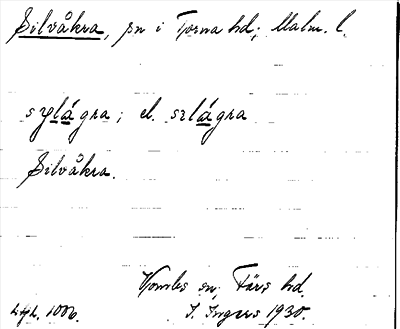 Silvåkra, sn i Torna hd; Malm. l.
sylágra; el. srlágra
Silvåkra.
Vombs sn, Färs hd.
I. Ingers 1930.